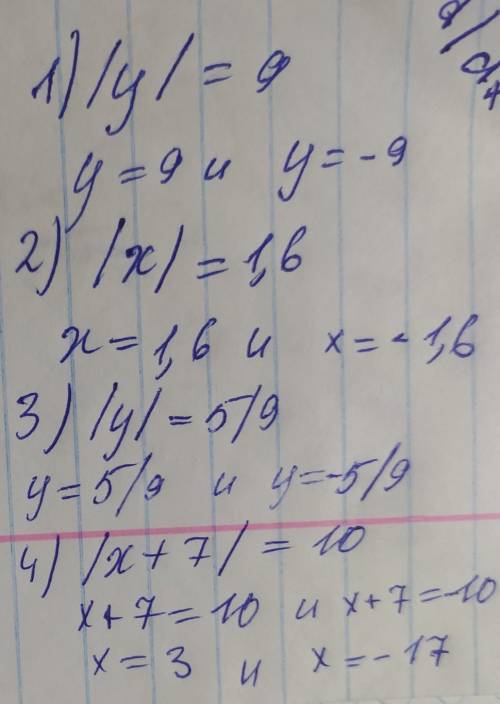 1) |y| = 9
y = 9 и y = -9
2) |x| = 1,6
x = 1,6 и x = -1,6
3) |y| = 5/9
y = 5/9 и y = -5/9
4) |x + 7| = 10
x + 7 = 10 и x + 7 = -10
x = 3 и x = -17